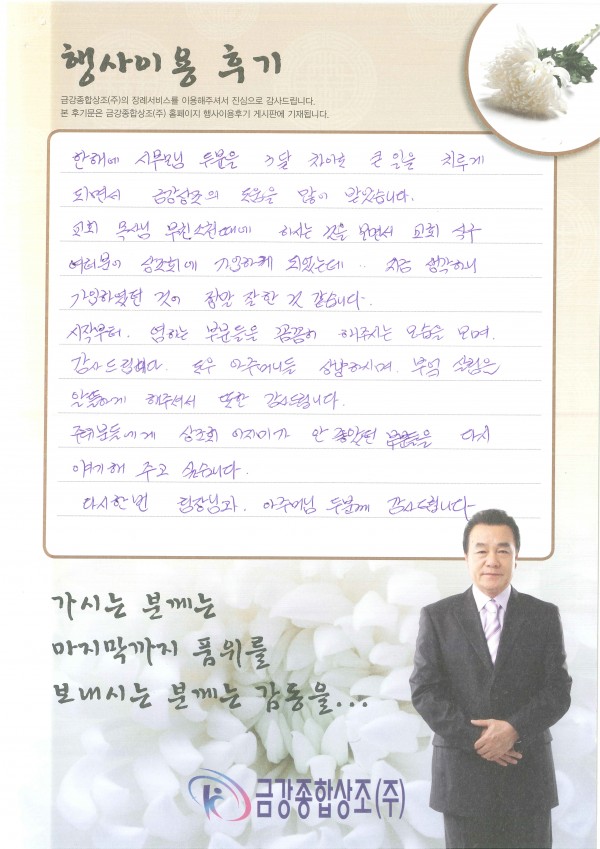 행사이용 후기
금강종합상조(주)의 장례서비스를 이용해주셔서 진심으로 감사드립니다.
본 후기문은 금강종합상조(주) 홈페이지 행사이용후기 게시판에 기재됩니다.
한해에 시부모님 두분을 3달 차이로 큰 일을 치루게
되면서 금강상조의 도움을 많이 받았습니다.
교회 목사님 부친소천때에 하시는 것을 보면서 교회 식구
여러분이 상조회에 가입하게 되었는데.. 지금 생각하니
가입하였던 것이 정말 잘한 것 같습니다.
시작부터. 염하는 부분들을 꼼꼼히 해주시는 모습을 보며.
감사드립니다. 도우 아주머니들 상냥하시며. 부엌 살림을
알뜰하게 해주셔서 또한 감사드립니다.
주위분들에게 상조회 이미지가 안 좋았던 부분들을 다시
얘기해 주고 싶습니다.
다시한번 팀장님과. 아주머님 두분께 감사드립니다
가시는 분께는
마지막까지 품위를
보내시는 분께는 감동을...
금강종합상조(주)